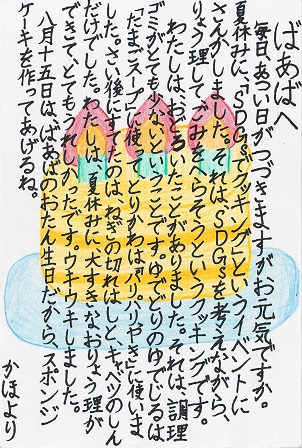 ばあばへ
毎日あつい日がつづきますがお元気ですか。
夏休みに、「SDGsでクッキング」というイベントに
さんかしました。それは、SDGsを考えながら、
りょう理してごみをへらそうというクッキングです。
わたしは、おどろいたことがありました。それは、調理
ゴミがとても少ないということです。ゆでどりのゆでじるは
「たまごスープ」に使い、とりかわは「パリパリやき」に使いま
した。さい後にすてたのは、ねぎの切れはしと、キャベツのしん
だけでした。わたしは、夏休みに、大すきなおりょう理が
できて、とてもうれしかったです。ウキウキしました。
八月十五日は、ばあばのおたん生日だから、スポンジ
ケーキを作ってあげるね。
かほより